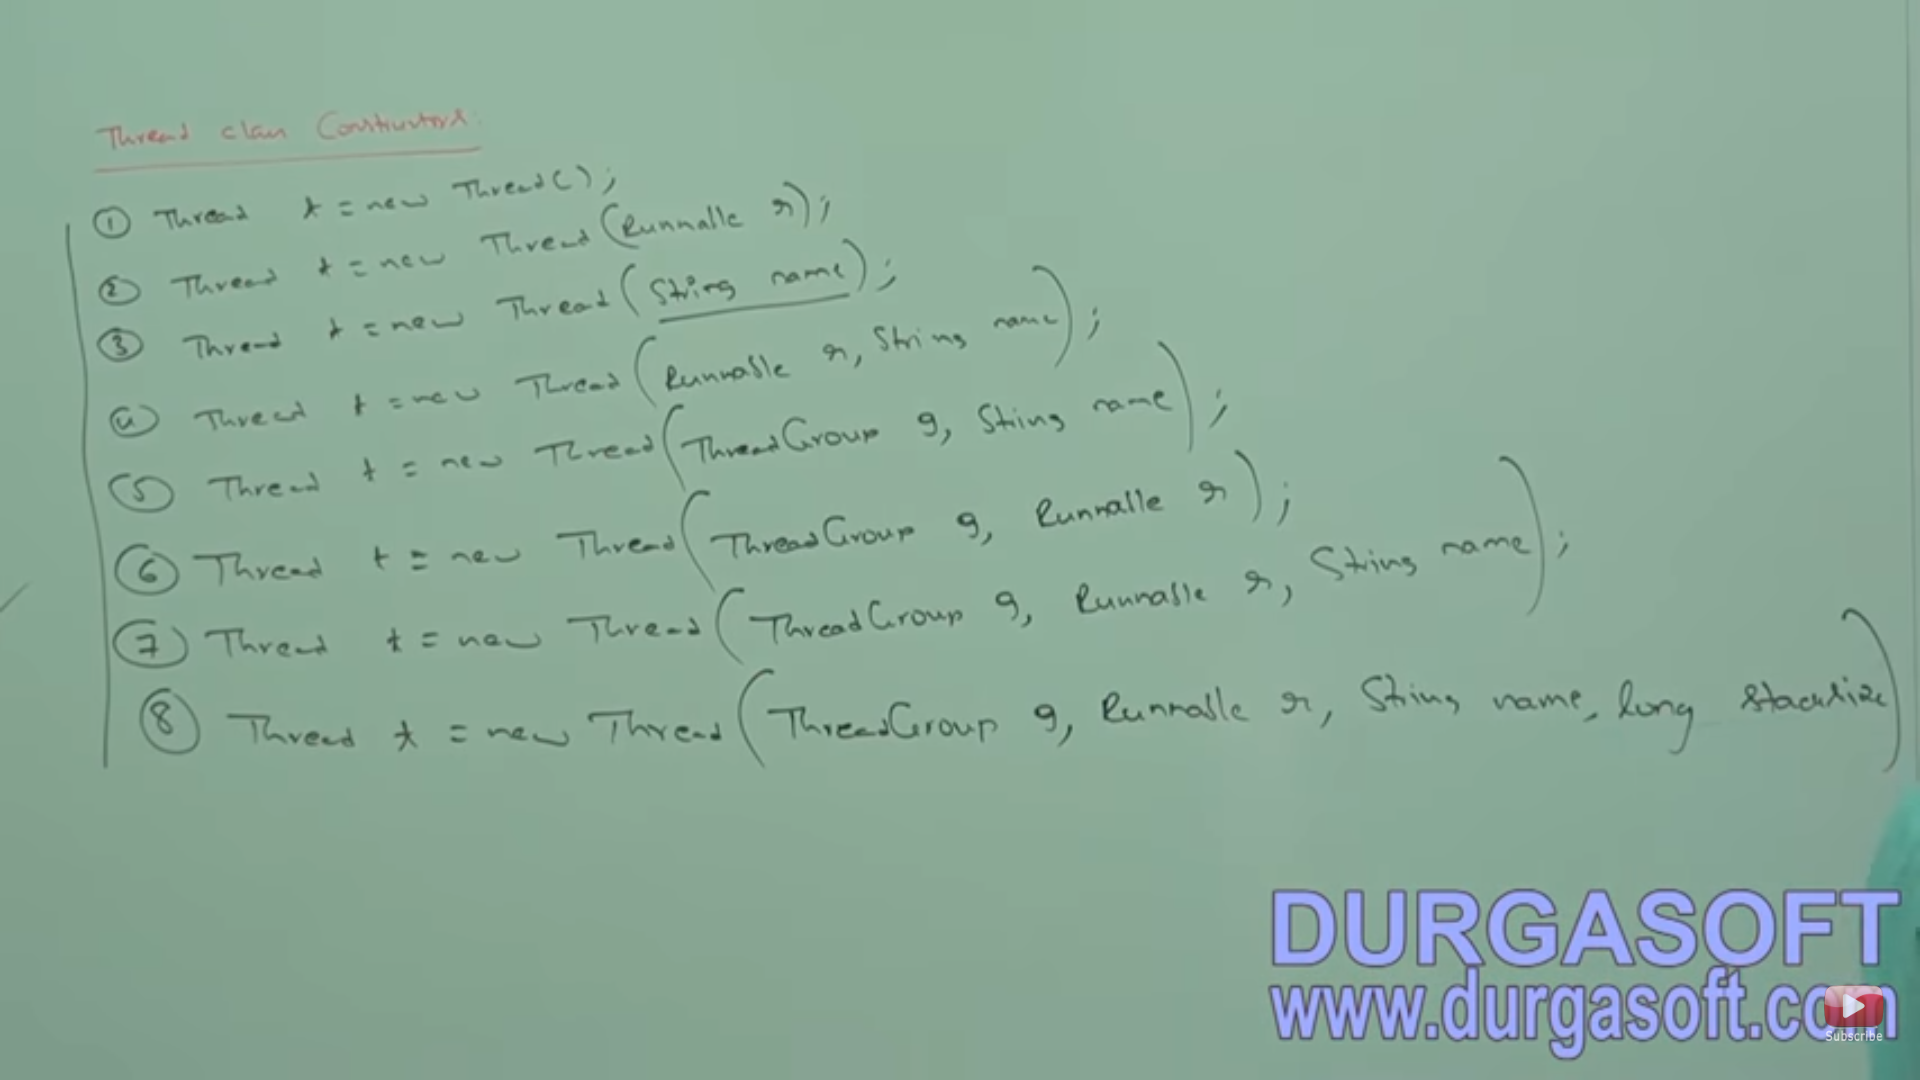 Thread class Constructors:
① Thread t = new Thread();
② Thread t = new Thread(Runnable r);
③ Thread t = new Thread(String name);
④ Thread t = new Thread(Runnable r, String name);
⑤ Thread t = new Thread(ThreadGroup g, String name);
⑥ Thread t = new Thread(ThreadGroup g, Runnable r);
⑦ Thread t = new Thread(ThreadGroup g, Runnable r, String name);
⑧ Thread t = new Thread(ThreadGroup g, Runnable r, String name, long stacksize)
DURGASOFT
www.durgasoft.com
Subscribe